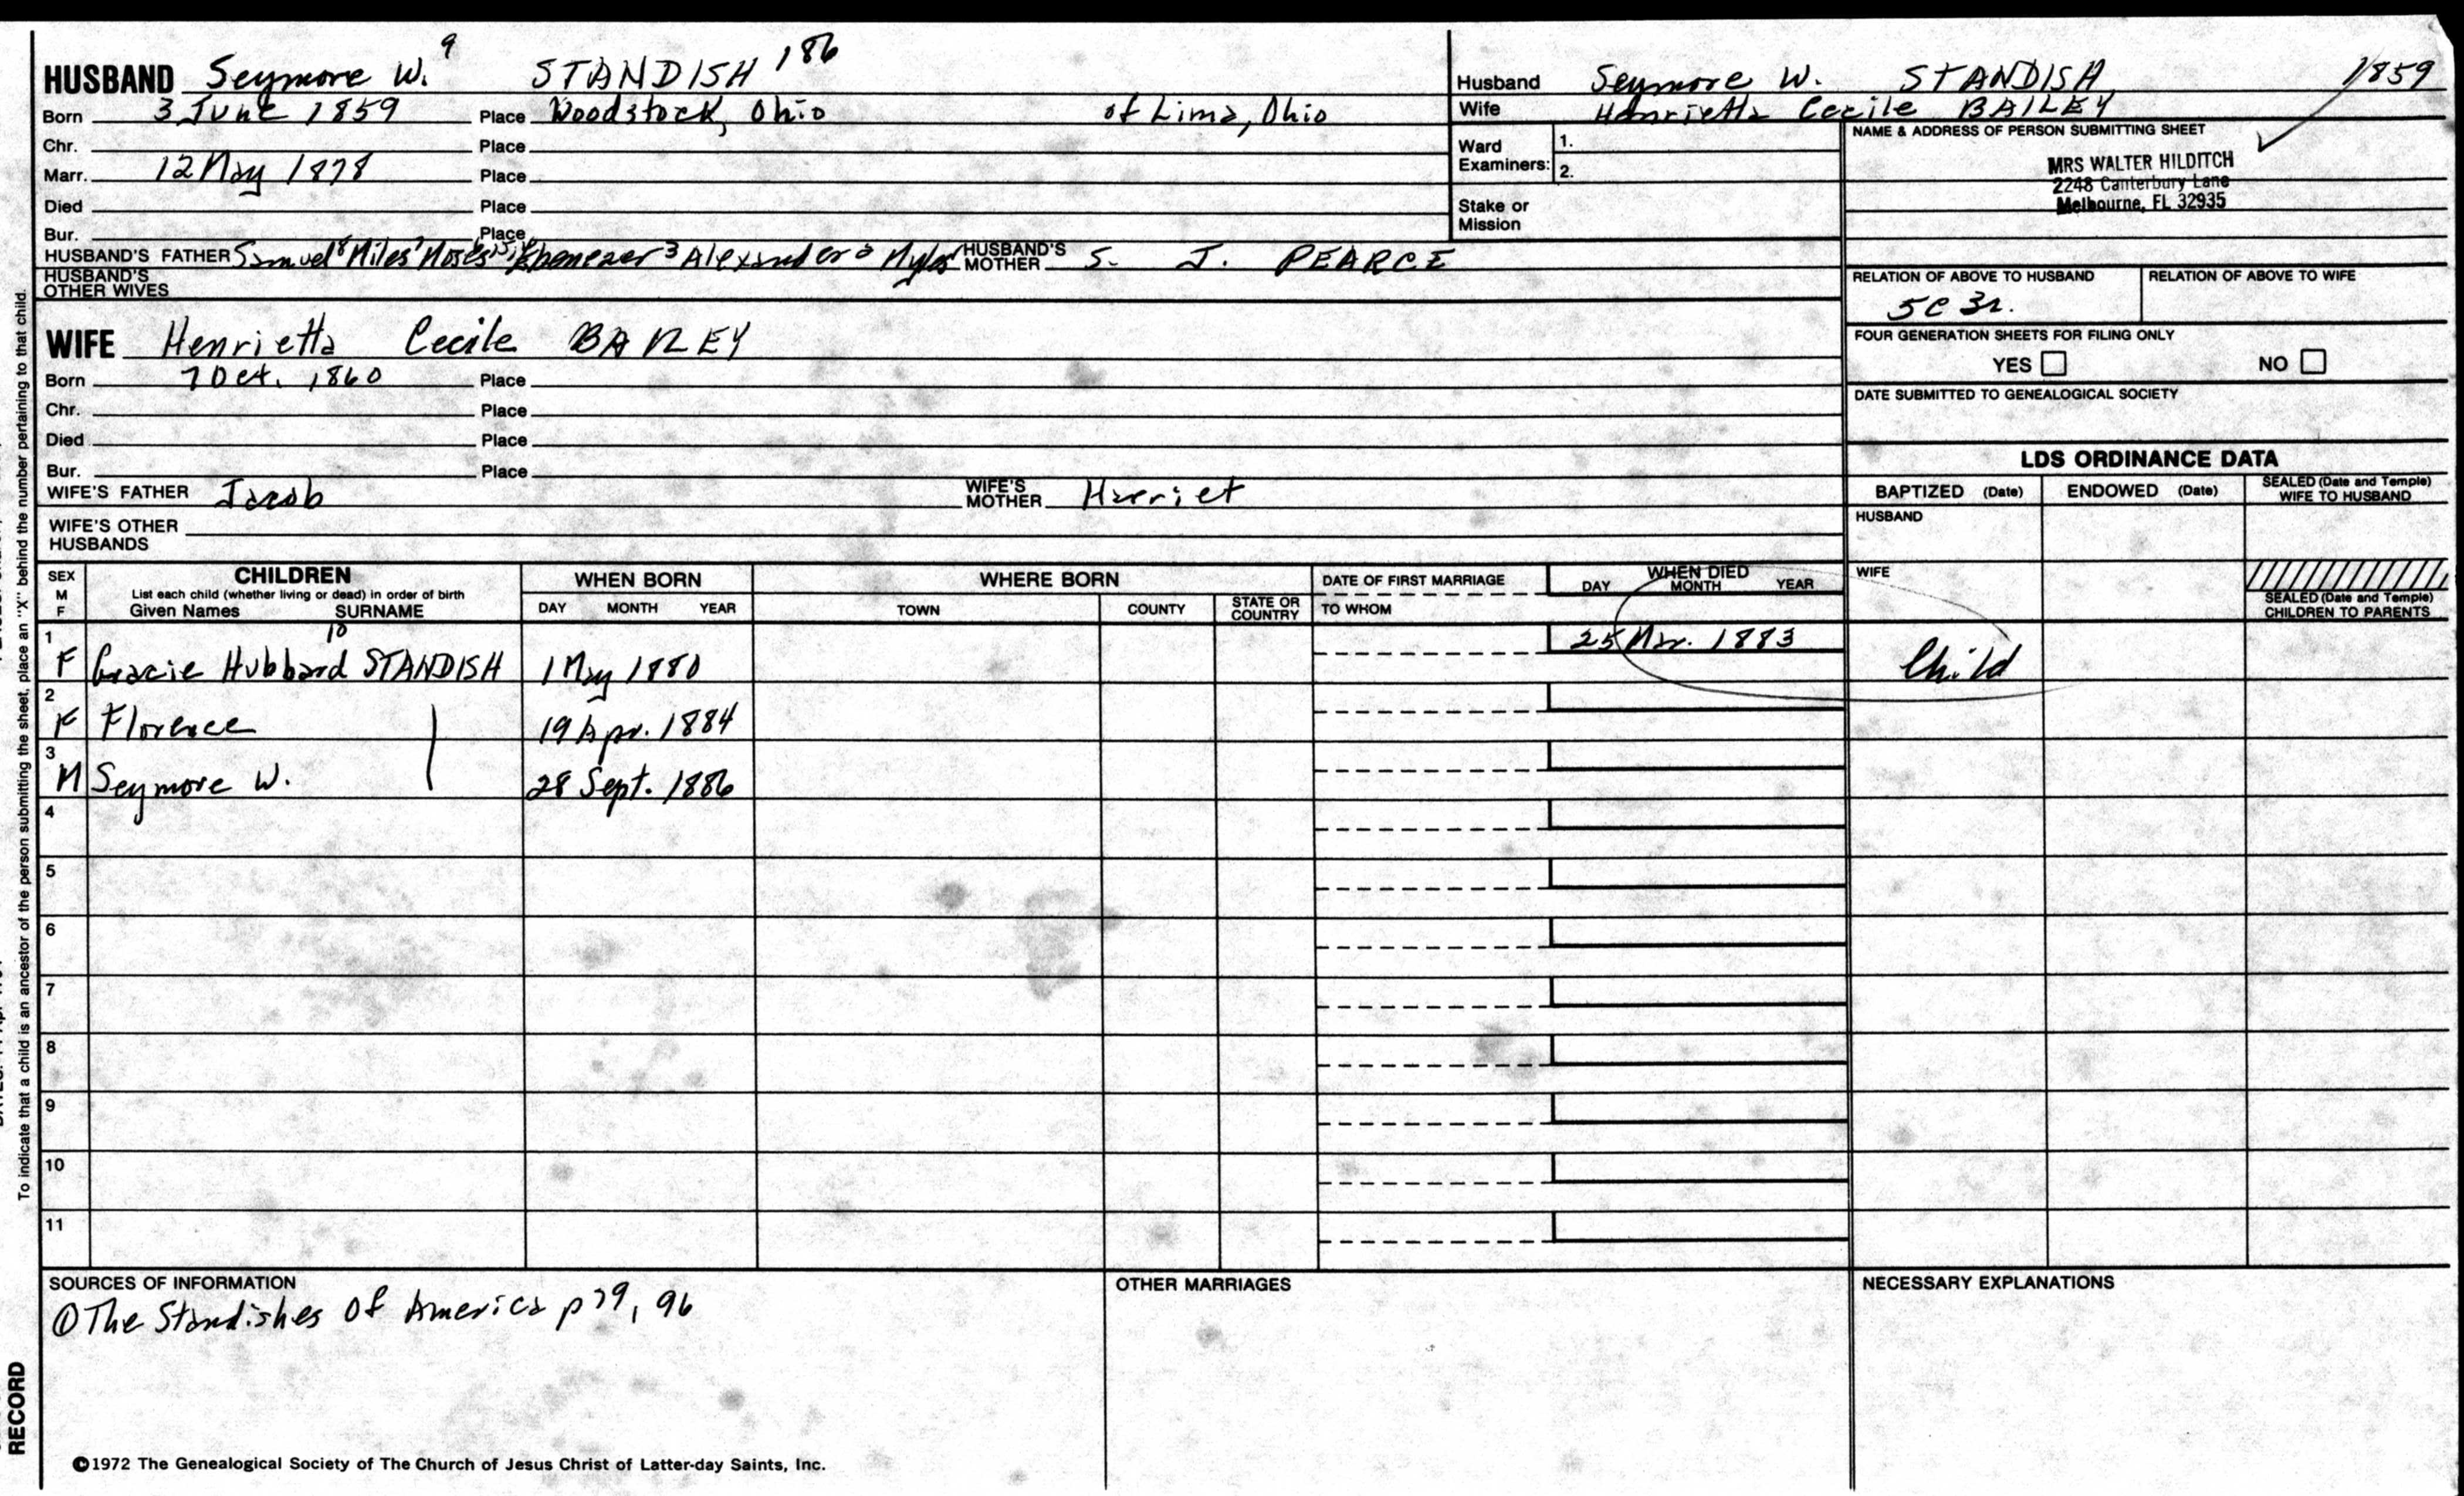 HUSBAND Seymore W. 9 STANDISH 186
Born 3 June 1859 Place Woodstock, Ohio of Lima, Ohio
Chr. Place
Marr. 12 May 1878 Place
Died Place
Bur. Place
HUSBAND'S FATHER Samuel 8 Miles 7 Moses Ebenezer 3 Alexander 2 Myles HUSBAND'S MOTHER S. J. PEARCE
HUSBAND'S OTHER WIVES
Husband Seymore W. STANDISH 1859
Wife Henrietta Cecile BAILEY
Ward Examiners: 1.
2.
Stake or Mission
NAME & ADDRESS OF PERSON SUBMITTING SHEET
MRS WALTER HILDITCH
2248 Canterbury Lane
Melbourne, FL 32935
RELATION OF ABOVE TO HUSBAND RELATION OF ABOVE TO WIFE
5C 3r.
FOUR GENERATION SHEETS FOR FILING ONLY
YES NO
DATE SUBMITTED TO GENEALOGICAL SOCIETY
WIFE Henrietta Cecile BAILEY
Born 7 Oct. 1860 Place
Chr. Place
Died Place
Bur. Place
WIFE'S FATHER Jacob WIFE'S MOTHER Harriet
WIFE'S OTHER HUSBANDS
LDS ORDINANCE DATA
BAPTIZED (Date) ENDOWED (Date) SEALED (Date and Temple) WIFE TO HUSBAND
HUSBAND
WIFE
SEALED (Date and Temple) CHILDREN TO PARENTS
SEX M F CHILDREN WHEN BORN WHERE BORN DATE OF FIRST MARRIAGE WHEN DIED
List each child (whether living or dead) in order of birth
Given Names SURNAME DAY MONTH YEAR TOWN COUNTY STATE OR COUNTRY TO WHOM DAY MONTH YEAR
10
1 F Gracie Hubbard STANDISH 1 May 1880 25 Mar. 1883 Child
2 F Florence 19 Apr. 1884
3 M Seymore W. 28 Sept. 1886
4
5
6
7
8
9
10
11
SOURCES OF INFORMATION
① The Standishes of America p 79, 96
OTHER MARRIAGES
NECESSARY EXPLANATIONS
©1972 The Genealogical Society of The Church of Jesus Christ of Latter-day Saints, Inc.
To indicate that a child is an ancestor of the person submitting the sheet, place an "X" behind the number pertaining to that child.
RECORD